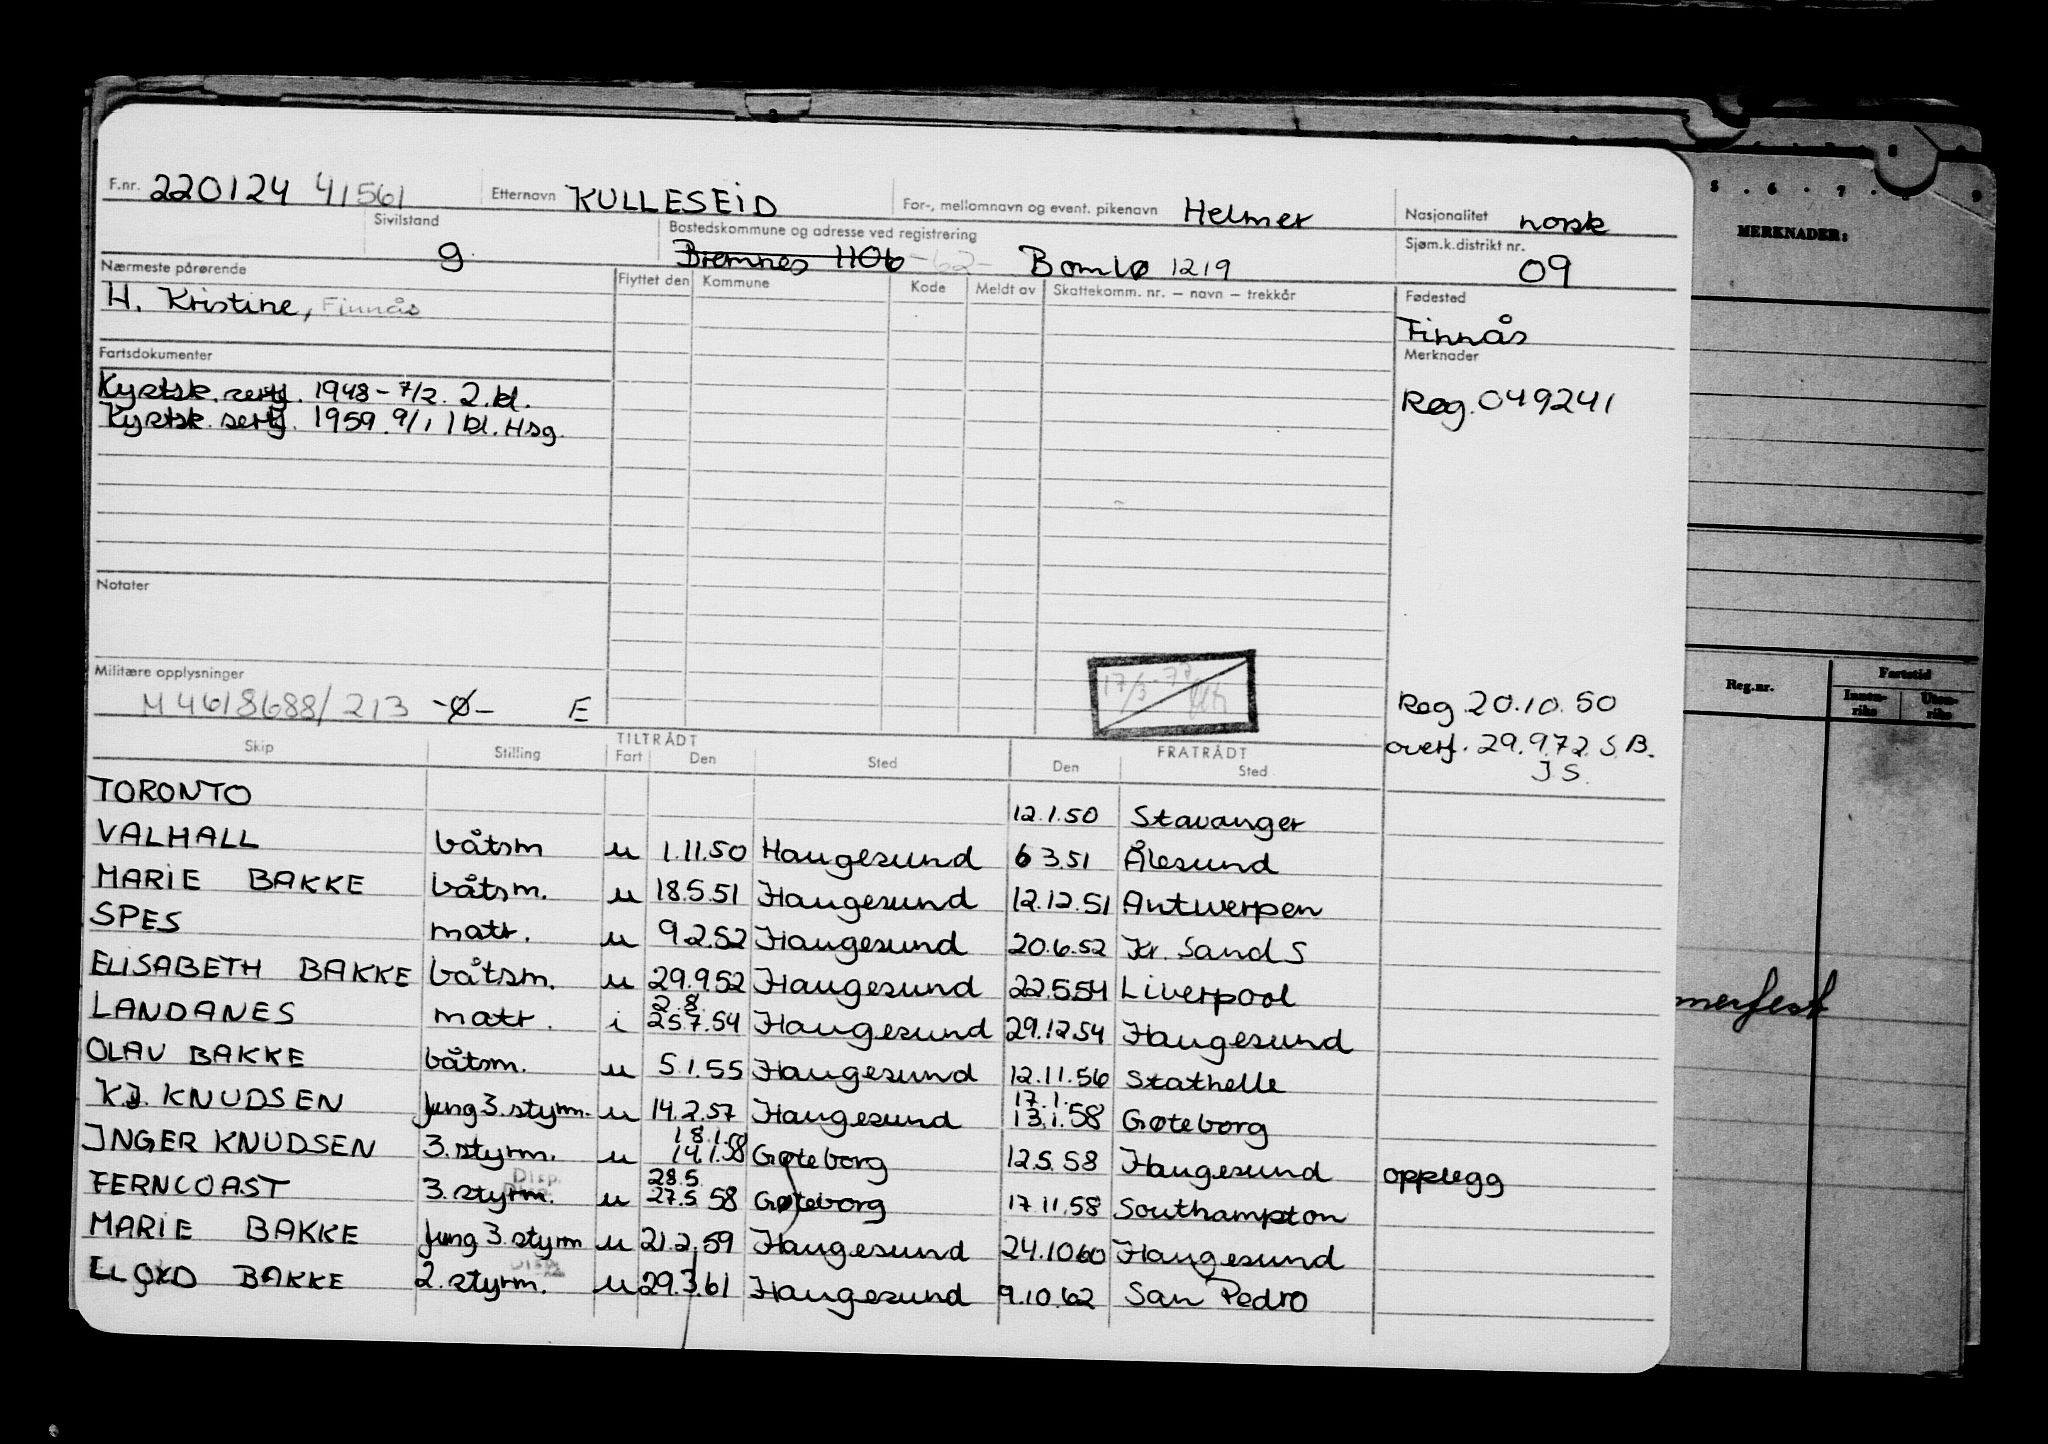 F.nr. 220124 41561 Etternavn KULLESEID For-, mellomnavn og event. pikenavn Helmer Nasjonalitet norsk
Sivilstand g Bostedskommune og adresse ved registrering Bremnes 1106 -62- Bømlo 1219 Sjøm.k.distrikt nr. 09
Nærmeste pårørende Flyttet den Kommune Kode Meldt av Skattekomm. nr. – navn – trekkår Fødested
H. Kristine, Finnås Finnås
Fartsdokumenter Merknader
Kystsk. sertf. 1948 - 7/2. 2. kl. Reg. 049241
Kystsk. sertf. 1959. 9/1 1 kl. Hsg.
Notater
Militære opplysninger 17/3-77
M 4618688/213 -Ø- E Reg 20.10.50
overf. 29.9.72. S.B.
J.S.
Skip Stilling TILTRÅDT Fart Den Sted FRATRÅDT Den Sted
TORONTO 12.1.50 Stavanger
VALHALL båtsm u 1.11.50 Haugesund 6 3.51 Ålesund
MARIE BAKKE båtsm. u 18.5.51 Haugesund 12.12.51 Antwerpen
SPES matr. u 9.2.52 Haugesund 20.6.52 Kr. Sand S
ELISABETH BAKKE båtsm. u 29.9.52 Haugesund 22.5.54 Liverpool
LANDANES matr. i 2.8. 25.7.54 Haugesund 29.12.54 Haugesund
OLAV BAKKE båtsm. u 5.1.55 Haugesund 12.11.56 Stathelle
K.J. KNUDSEN jung 3. styrm. u 14.2.57 Haugesund 17.1. 13.1.58 Gøteborg
INGER KNUDSEN 3. styrm. u 18.1.58 14.1.58 Gøteborg 12.5.58 Haugesund opplegg
FERNCOAST Disp. 3. styrm. u 28.5. 27.5 58 Gøteborg 17.11.58 Southampton
MARIE BAKKE jung 3. styrm u 21.2.59 Haugesund 24.10.60 Haugesund
LLOYD BAKKE Disp. 2. styrm. u 29.3.61 Haugesund 9.10.62 San Pedro
5 . 6 . 7 . 8 9
MERKNADER:
Reg.nr. Fartstid
Innen-riks Uten-riks
merfest